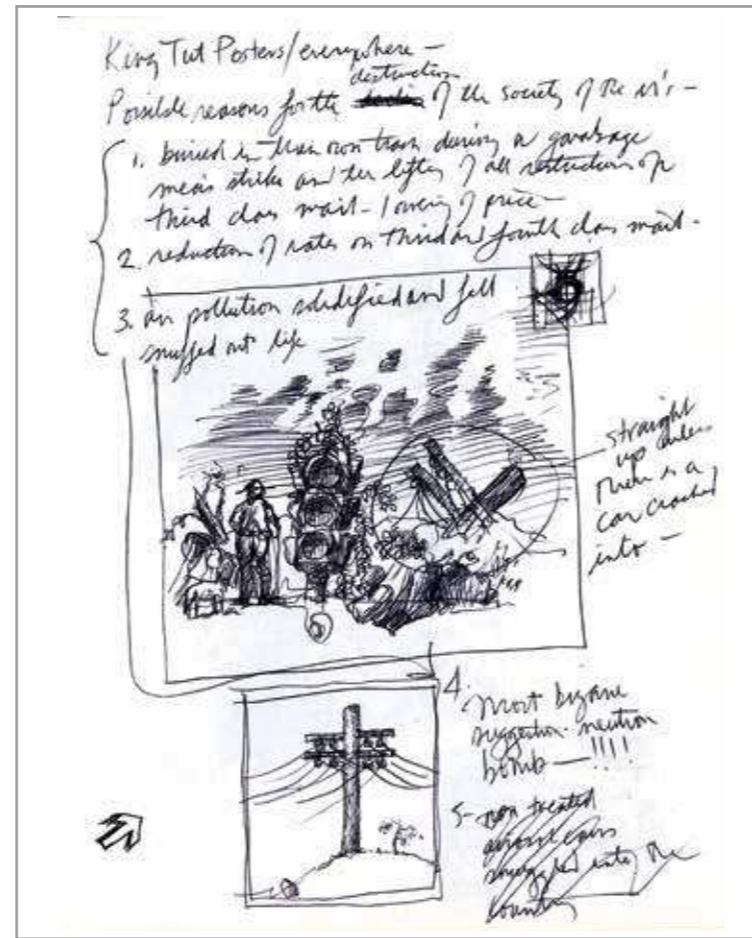 King Tut Posters/everywhere —
destruction
Possible reasons for the of the society of the U's —
1. buried in their own trash during a garbage
mens strike and the lifting of all restrictions on
third class mail - lowering of price —
2. reduction of rates on third and fourth class mail -
3. air pollution solidified and fell
snuffed out life
straight
up unless
there is a
car crashed
into —
4.
Most bizarre
suggestion - neutron
bomb — !!!!
5 - non treated
smuggled into the
country